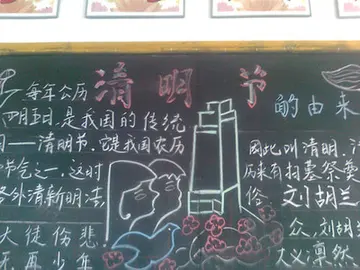 清明节
的由来
每年公历
四月五日是我国的传统
日——清明节。它是我国农历
节气之一,这时
外清新明洁,
大徒伤悲
再少年
因此叫清明,
历来有扫墓祭
俗
刘胡兰
众,刘胡
大义凛然